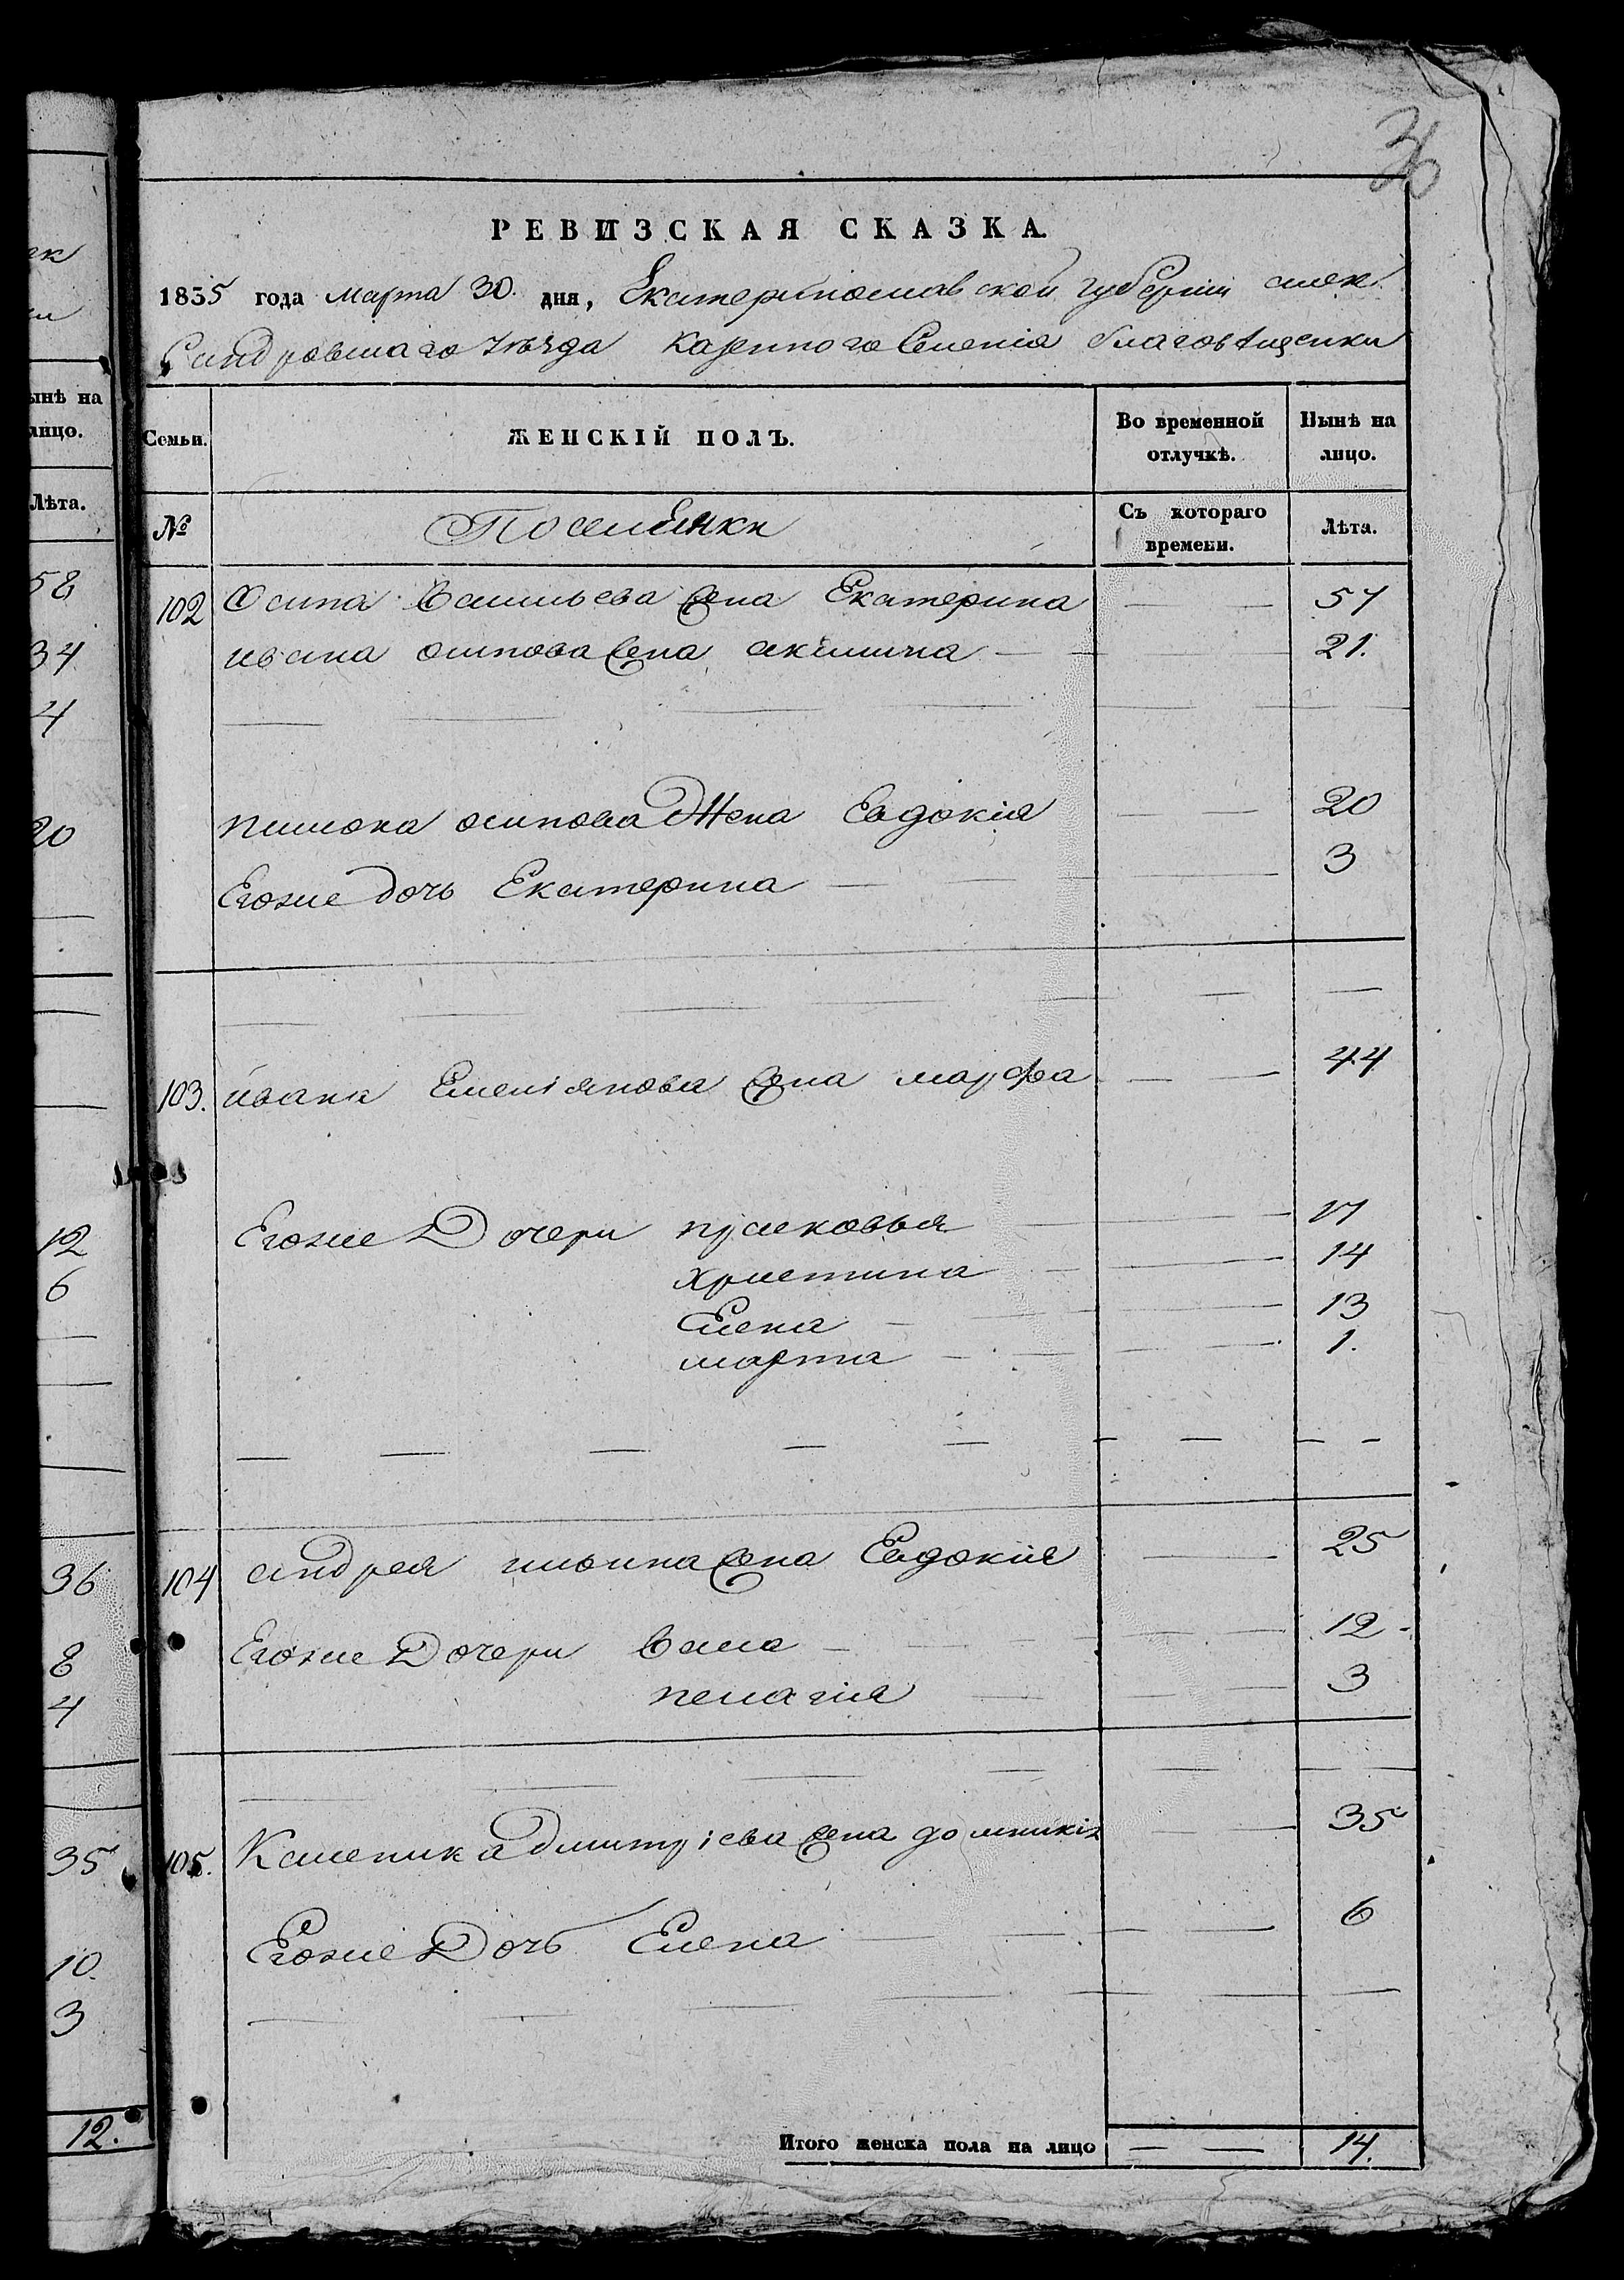 36
ек
ли
РЕВИЗСКАЯ СКАЗКА.
1835 года марта 30. дня, Екатеринославской губерніи алек
сандровскаго уѣзда казенного селенія благовѣщенки
ынѣ на
лицо.
Семьи.
ЖЕНСКІЙ ПОЛЪ.
Во временной
отлучкѣ.
Нынѣ на
лицо.
Лѣта.
№
Поселянки
Съ котораго
времени.
Лѣта.
58
102 Осипа Васильева жена Екатерина — — 57
34
ивана осипова жена акилина — — 21.
4
20
осипова Жена Евдокія — — 20
Егоже дочь Екатерина — — 3
103. ивана Емеліянова жена марфа — — 44
12
Егоже Дочери прасковья — 17
6
христина — 14
Елена — 13
марта — 1.
36
104 андрея ильина жена Евдокія — 25
8
Егоже Дочери Васа — 12
4
пелагія — 3
35
105. Каленика дмитріева жена домникія — 35
10.
Егоже Дочь Елена — 6
3
12.
Итого женска пола на лицо — — 14.